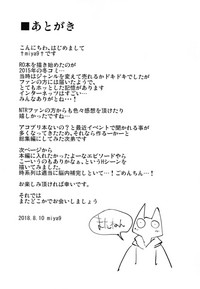 ■あとがき
こんにちわ、はじめまして
†miya9です
RO本を描き始めたのが
2015年の冬コミ…
当時はジャンルを変えて売れるかドキドキでしたが
ファンの方には描いたようで、
とてもホッとした記憶があります
インターネッツはすごい…
みんなありがとね…!
NTRファンの方からも色々感想を頂けたり
嬉しかったですねー
アコプリ本ないの?と最近イベントで聞かれる事が
多くなってきたため、それなら作るーかーと
総集編にしてみた次第です
次ページから
本編に入れたかったよーなエピソードやら
こーいうのもありかなぁ、というHシーンを
描いてみました。
時系列は適当に脳内補完しといて…!ごめんちぃん!
お楽しみ頂ければ幸いです。
それでは
またどこかでお会いしましょう
2018.8.10 miya9